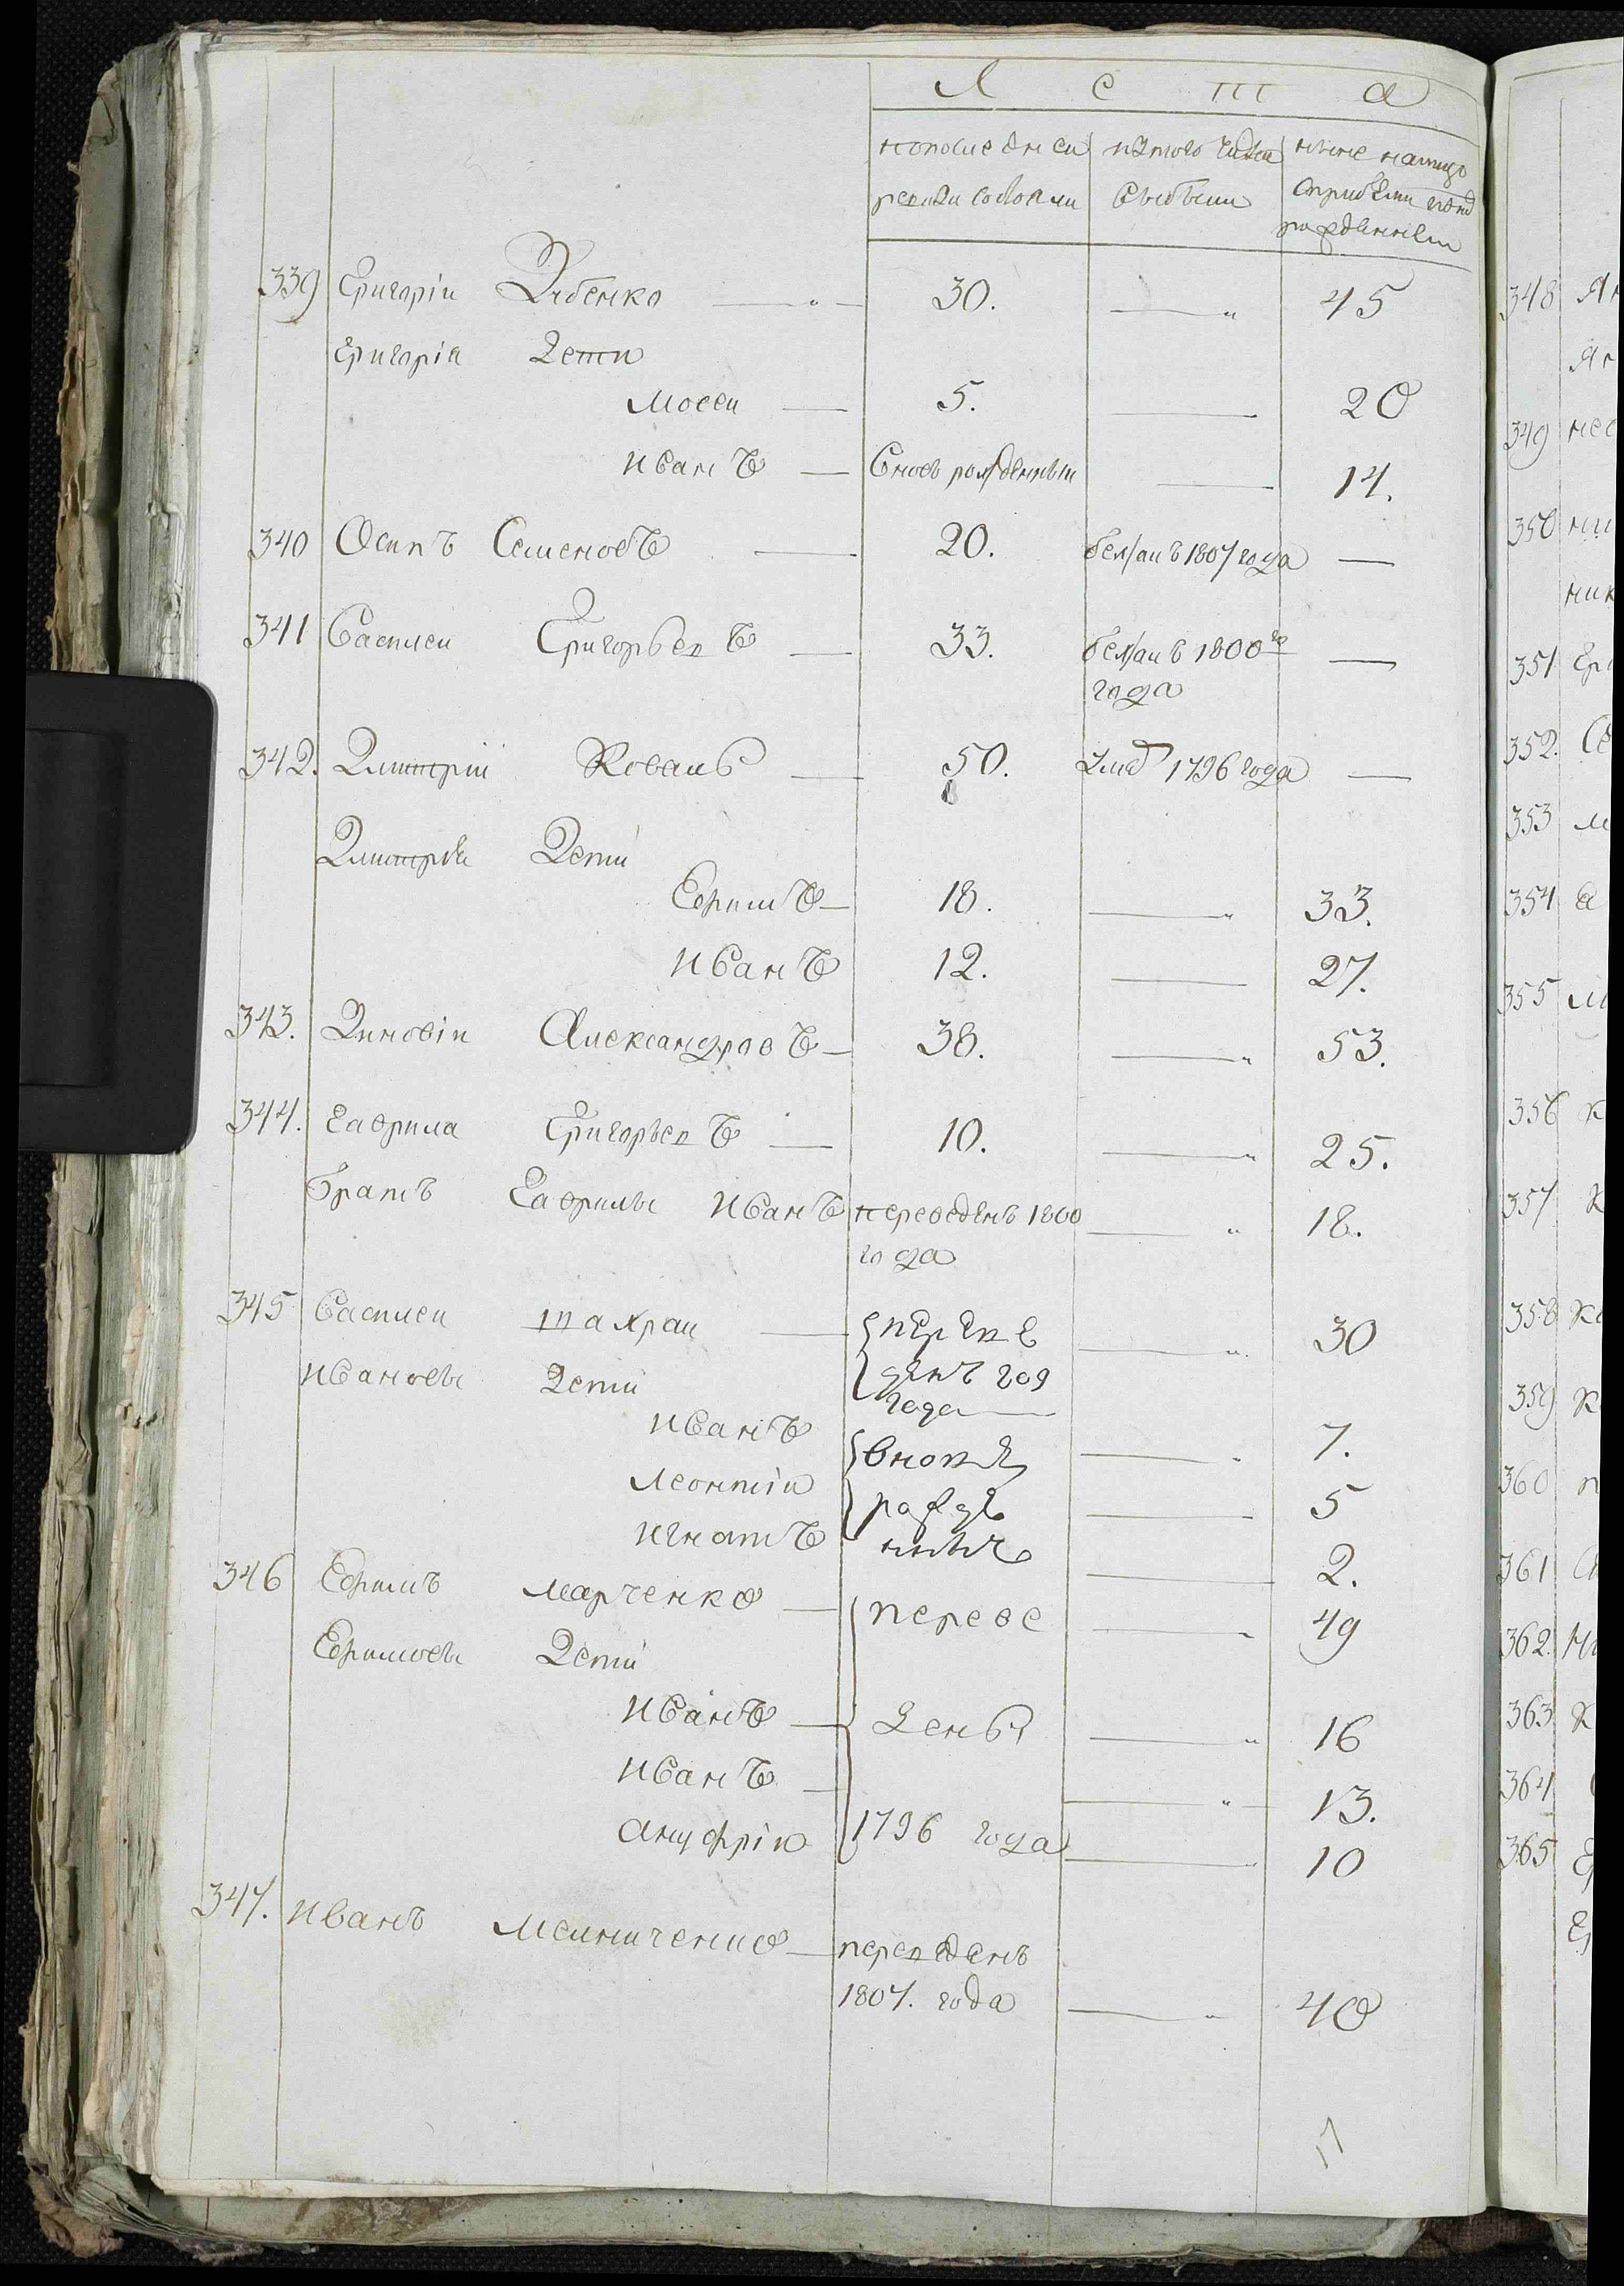 Л е т а
по последней ревизи состояли
изтого числа выбыли
ныне налицо
рожденнеми
339 Григорій Дубенко — 30. — 45
Григорія Дети
Мосеи — 5. — 20
Иванъ — Вновь рожденныи — 14.
340 Осипъ Семеновъ — 20. бежалъ 1807 года —
341 Василеи Григорьевъ — 33. бежалъ 1800го —
года
342. Дмитріи Коваль — 50. Умре 1796 года —
Дмитрія Дети
Ефимъ — 18. — 33.
Иванъ 12. — 27.
343. Зиновіи Александровъ — 38. — 53.
344. Гаврила Григорьевъ — 10. — 25.
Братъ Гаврилы Иванъ переведенъ 1800 — 18.
года
345 Василеи — переве — 30
денъ 809
года
Ивановы Дети
Иванъ вновъ — 7.
Леонтіи рожде — 5
Игнатъ нныъ — 2.
346 Ефимъ Марченко — переве — 49
Ефимовы Дети
Иванъ — дены — 16
Иванъ — 13.
Ануфріи 1796 года — 10
347. Иванъ Мелниченко — переведенъ
1807. года — 40
348
349
350
351
352.
353
354
355
356
357
358
359
360
361
362.
363
364
365